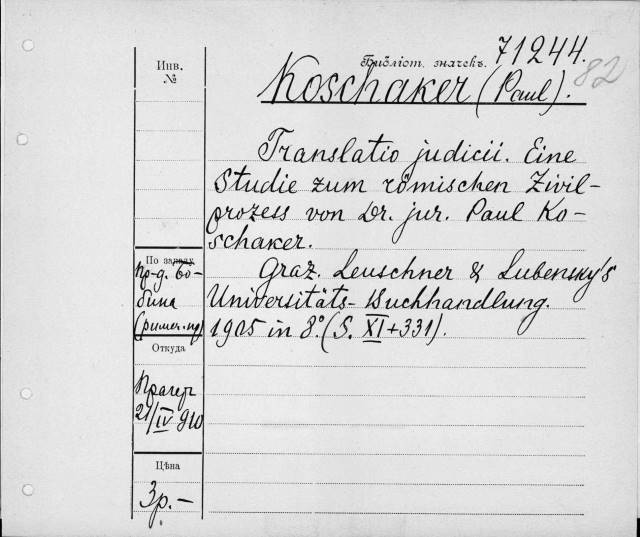 Библіот. значекъ. 71244.
82
Инв.
№
Koschaker (Paul).
Translatio judicii. Eine
Studie zum römischen Zivil-
prozess von Dr. jur. Paul Ko-
schaker.
Graz. Leuschner & Lubensky's
Universitäts-Buchhandlung.
1905 in 8º. (S. XI+331).
По заказу
пр-д. Бо-
бина
Откуда
Прагеръ
21/IV 910
Цѣна
3р.—